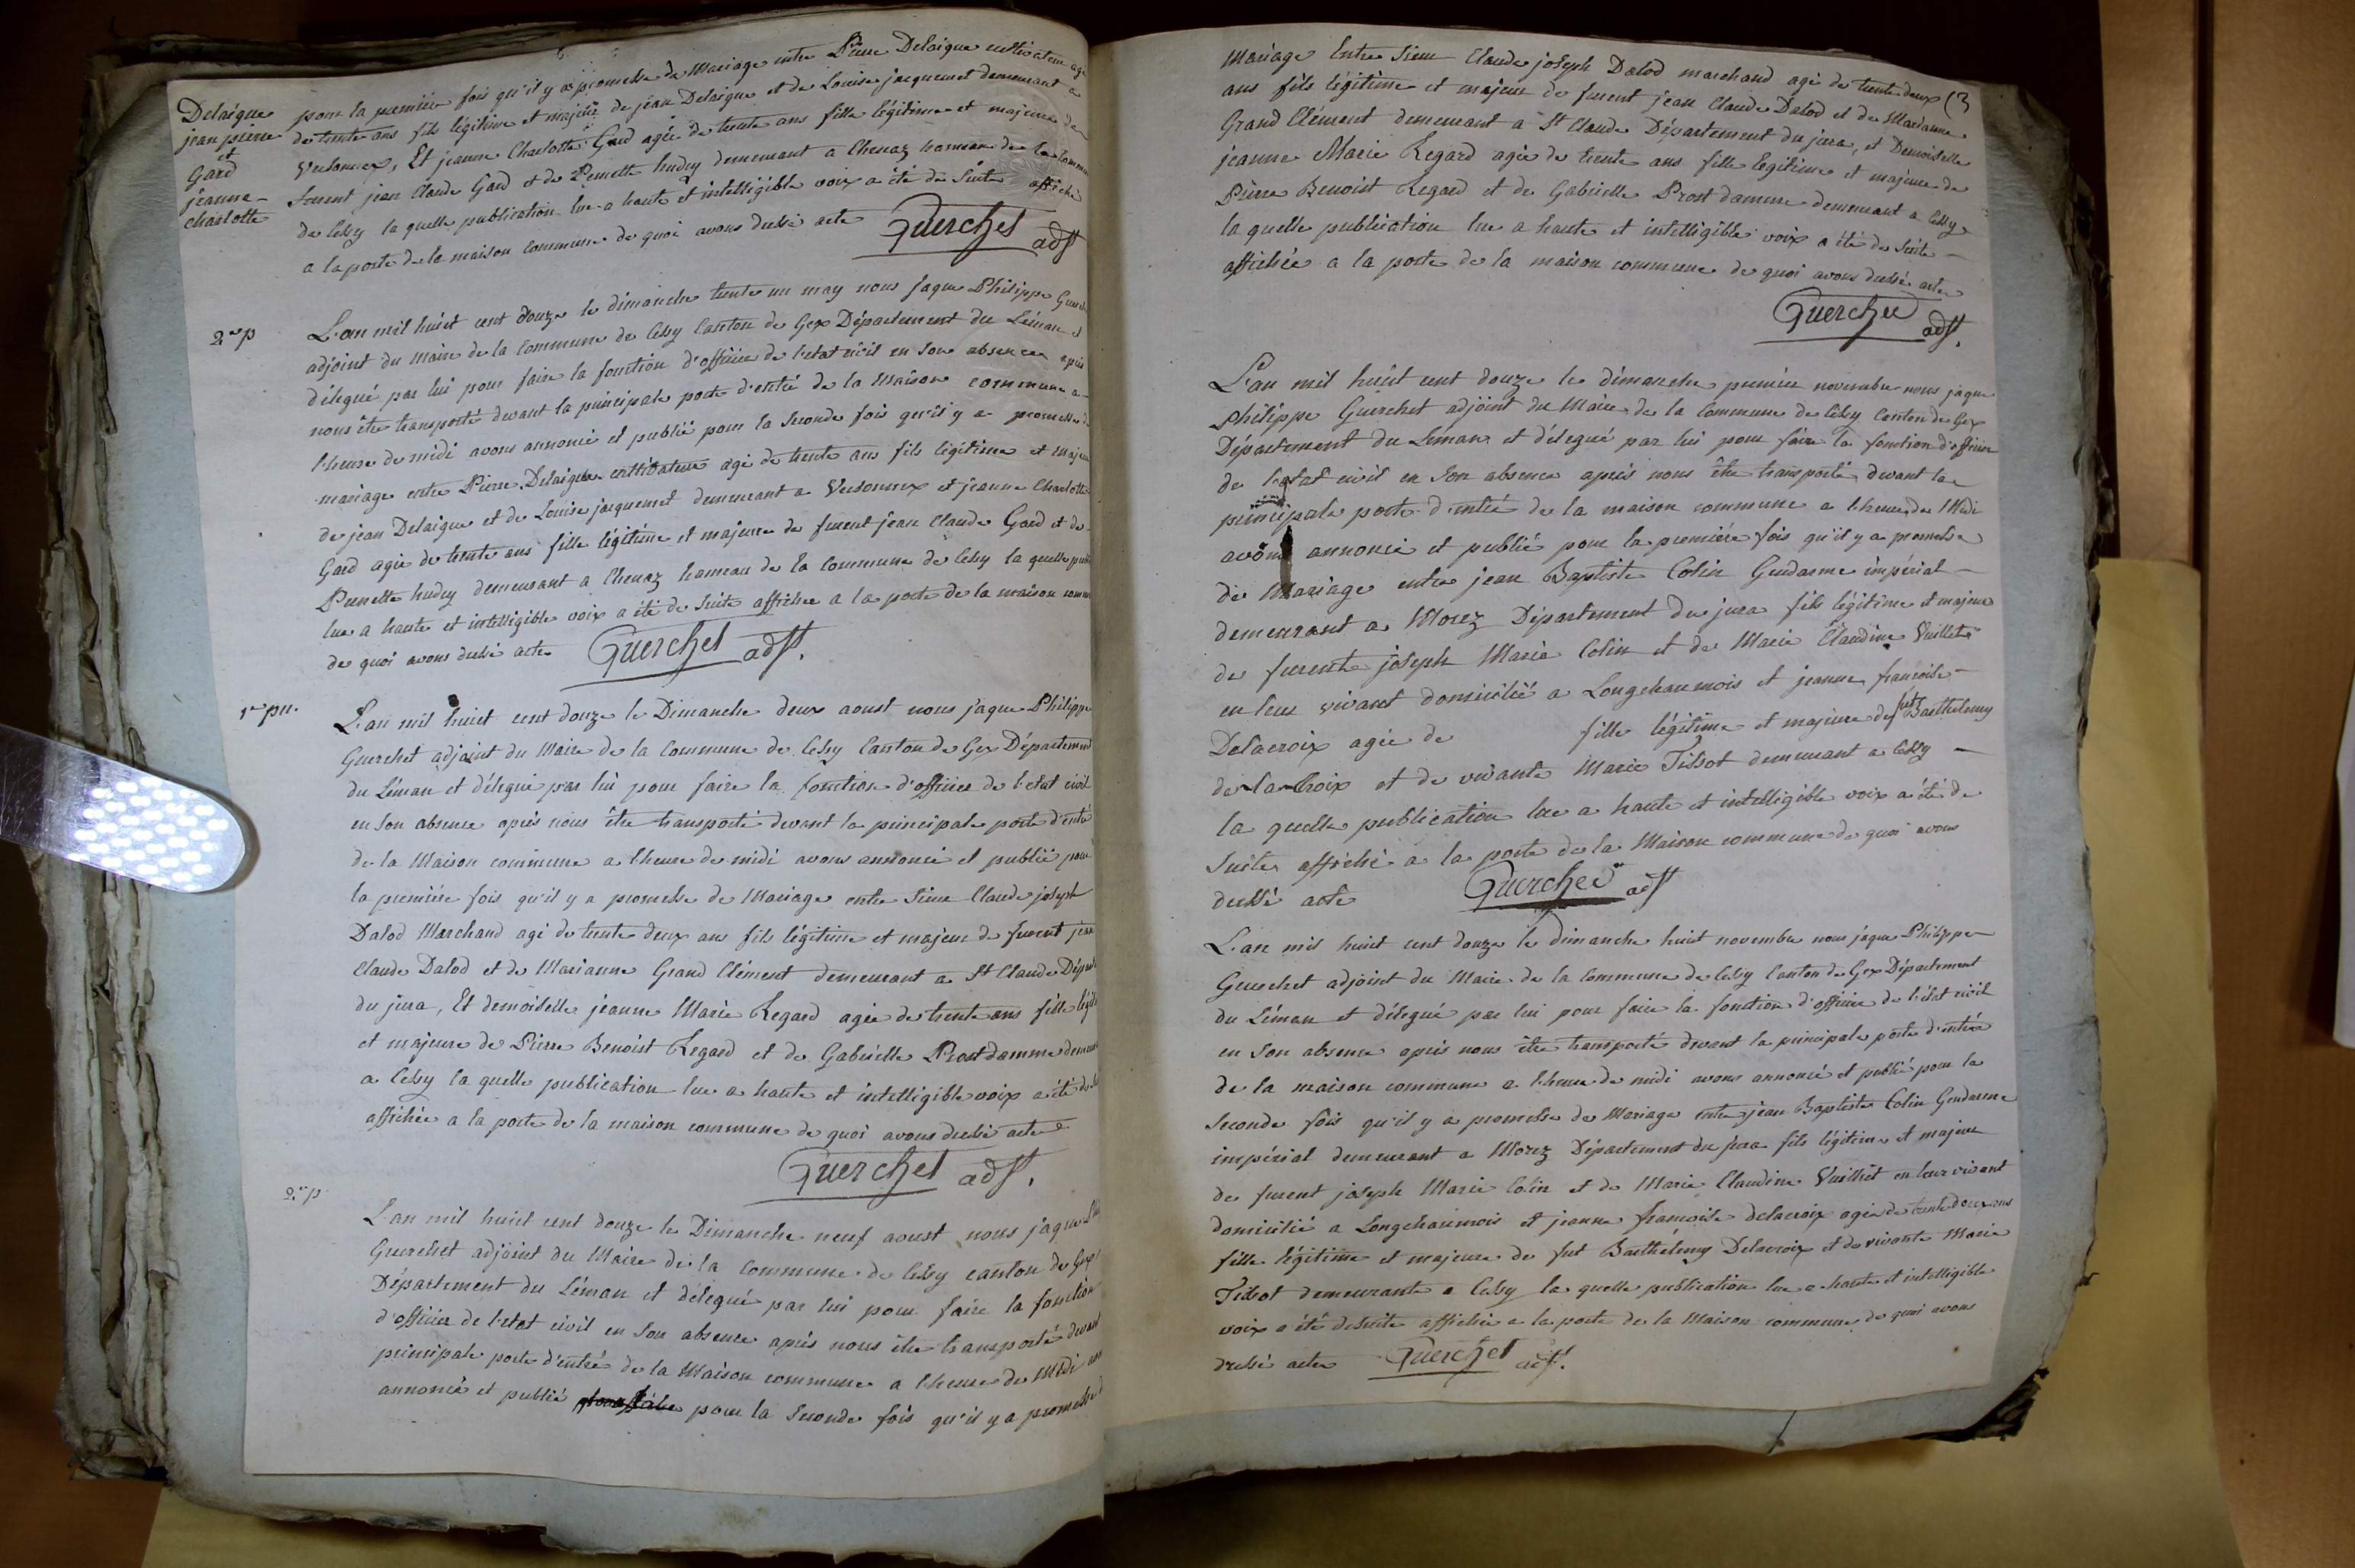 Delaigue
jean pierre
et
Gard
jeanne-
charlotte
pour la premiére fois qu'il y a promesse de Mariage entre Pierre Delaigue cultivateur agé
de trente ans fils légitime et majeur de jean Delaigue et de Louise jacquemet demeurant a
Versonnex, Et jeanne Charlotte Gard agée de trente ans fille légitime et majeure de
furent jean Claude Gard et de Pernette hudry demeurant a Chenaz hameau de la Commune
de Cessy la quelle publication lue a haute et intelligible voix a été de suite affichée
a la porte de la maison commune de quoi avons dressé acte Guerchet adjt
2e p
L'an mil huict cent douze le dimanche trente un may nous jaque Philippe
adjoint du Maire de la Commune de Cessy Canton de Gex Département du Léman et
délegué par lui pour faire la fonction d'officier de l'etat civil en son absence après
nous être transporté devant la principale porte d'entrée de la Maison commune a
l'heure de midi avons annoncé et publié pour la seconde fois qu'il y a promesse de
mariage entre Pierre Delaigue cultivateur agé de trente ans fils légitime et majeur
de jean Delaigue et de Louise jacquemet demeurant a Versonnex et jeanne Charlotte
Gard agée de trente ans fille légitime et majeure de furent jean Claude Gard et de
Pernette hudry demeurant a Chenaz hameau de la Commune de Cessy la quelle
lue a haute et intelligible voix a été de suite affichée a la porte de la maison
de quoi avons dressé acte Guerchet adjt.
1re pu.
L'an mil huict cent douze le Dimanche deux aoust nous jaque Philippe
Guerchet adjoint du Maire de la Commune de Cessy Canton de Gex Département
du Léman et délegué par lui pour faire la fonction d'officier de l'etat civil
en son absence aprés nous être transporté devant la principale porte d'entré
de la Maison commune a lheure de midi avons annoncé et publié pour
la premiére fois qu'il y a promesse de Mariage entre Sieur Claude joseph
Dalod Marchand agé de trente deux ans fils légitime et majeur de furent jean
Claude Dalod et de Marianne Grand Clément demeurant a St Claude
du jura, Et demoiselle jeanne Marie Regard agée de trente ans fille
et majeure de Pierre Benoist Regard et de Gabrielle Prost damme
a Cessy la quelle publication lue a haute et intelligible voix a été de
affichée a la porte de la maison commune de quoi avons dressé acte
Guerchet adjt.
2e p
L'an mil huict cent douze le Dimanche neuf aoust nous jaque
Guerchet adjoint du Maire de la Commune de Cessy canton de Gex
Département du Léman et délegué par lui pour faire la fonction
d'officier de l'etat civil en son absence aprés nous être transporté devant
principale porte d'entrée de la Maison commune a l'heure de Midi
annoncé et publié pour la seconde fois qu'il y a promesse
Mariage Entre Sieur Claude joseph Dalod marchand agé de trente deux
ans fils légitime et majeur de furent jean Claude Dalod et de Marianne
Grand Clément demeurant a St Claude Département du jura, et Demoiselle
jeanne Marie Regard agée de trente ans fille legitime et majeure de
Pierre Benoist Regard et de Gabrielle Prost damme demeurant a Cessy
la quelle publication lue a haute et intelligible voix a été de suite
affichée a la porte de la maison commune de quoi avons dressé acte
Guerchet adjt.
L'an mil huict cent douze le dimanche premier novembre nous jaque
Philippe Guerchet adjoint du Maire de la Commune de Cessy Canton de Gex
Département du Léman et délegué par lui pour faire la fonction d'officier
de l'etat civil en son absence aprés nous être transporté devant la
principale porte d'entrée de la maison commune a l'heure de Midi
avons annoncé et publié pour la premiére fois qu'il y a promesse
de Mariage entre jean Baptiste Colin Gendarme impérial
demeurant a Morez Département du jura fils légitime et majeur
de furent joseph Marie Colin et de Marie Claudine Vuillet
en leur vivant domicilié a Longchaumois et jeanne francoise
Delacroix agée de fille légitime et majeure de fut Barthelemy
de la Croix et de vivante Marie Tissot demeurant a Cessy
la quelle publication lue a haute et intelligible voix a été de
suite affiché a la porte de la Maison commune de quoi avons
dressé acte Guerchet adjt
L'an mil huict cent douze le dimanche huict novembre nous jaque Philippe
Guerchet adjoint du Maire de la Commune de Cessy Canton de Gex Département
du Léman et délegué par lui pour faire la fonction d'officier de l'état civil
en son absence aprés nous être transporté devant la principale porte d'entrée
de la maison commune a l'heure de midi avons annoncé et publié pour la
seconde fois qu'il y a promesse de Mariage entre jean Baptiste Colin Gendarme
impérial demeurant a Morez Département du jura fils légitime et majeur
de furent joseph Marie Colin et de Marie Claudine Vuillet en leur vivant
domicilié a Longchaumois et jeanne francoise delacroix agée de trente deux ans
fille légitime et majeure de fut Barthélemy Delacroix et de vivante Marie
Tissot demeurante a Cessy la quelle publication lue a haute et intelligible
voix a été de suite affichée a la porte de la Maison commune de quoi avons
dressé acte Guerchet adjt.